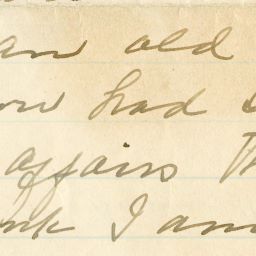 an old
ow had
affairs Th
nk I am